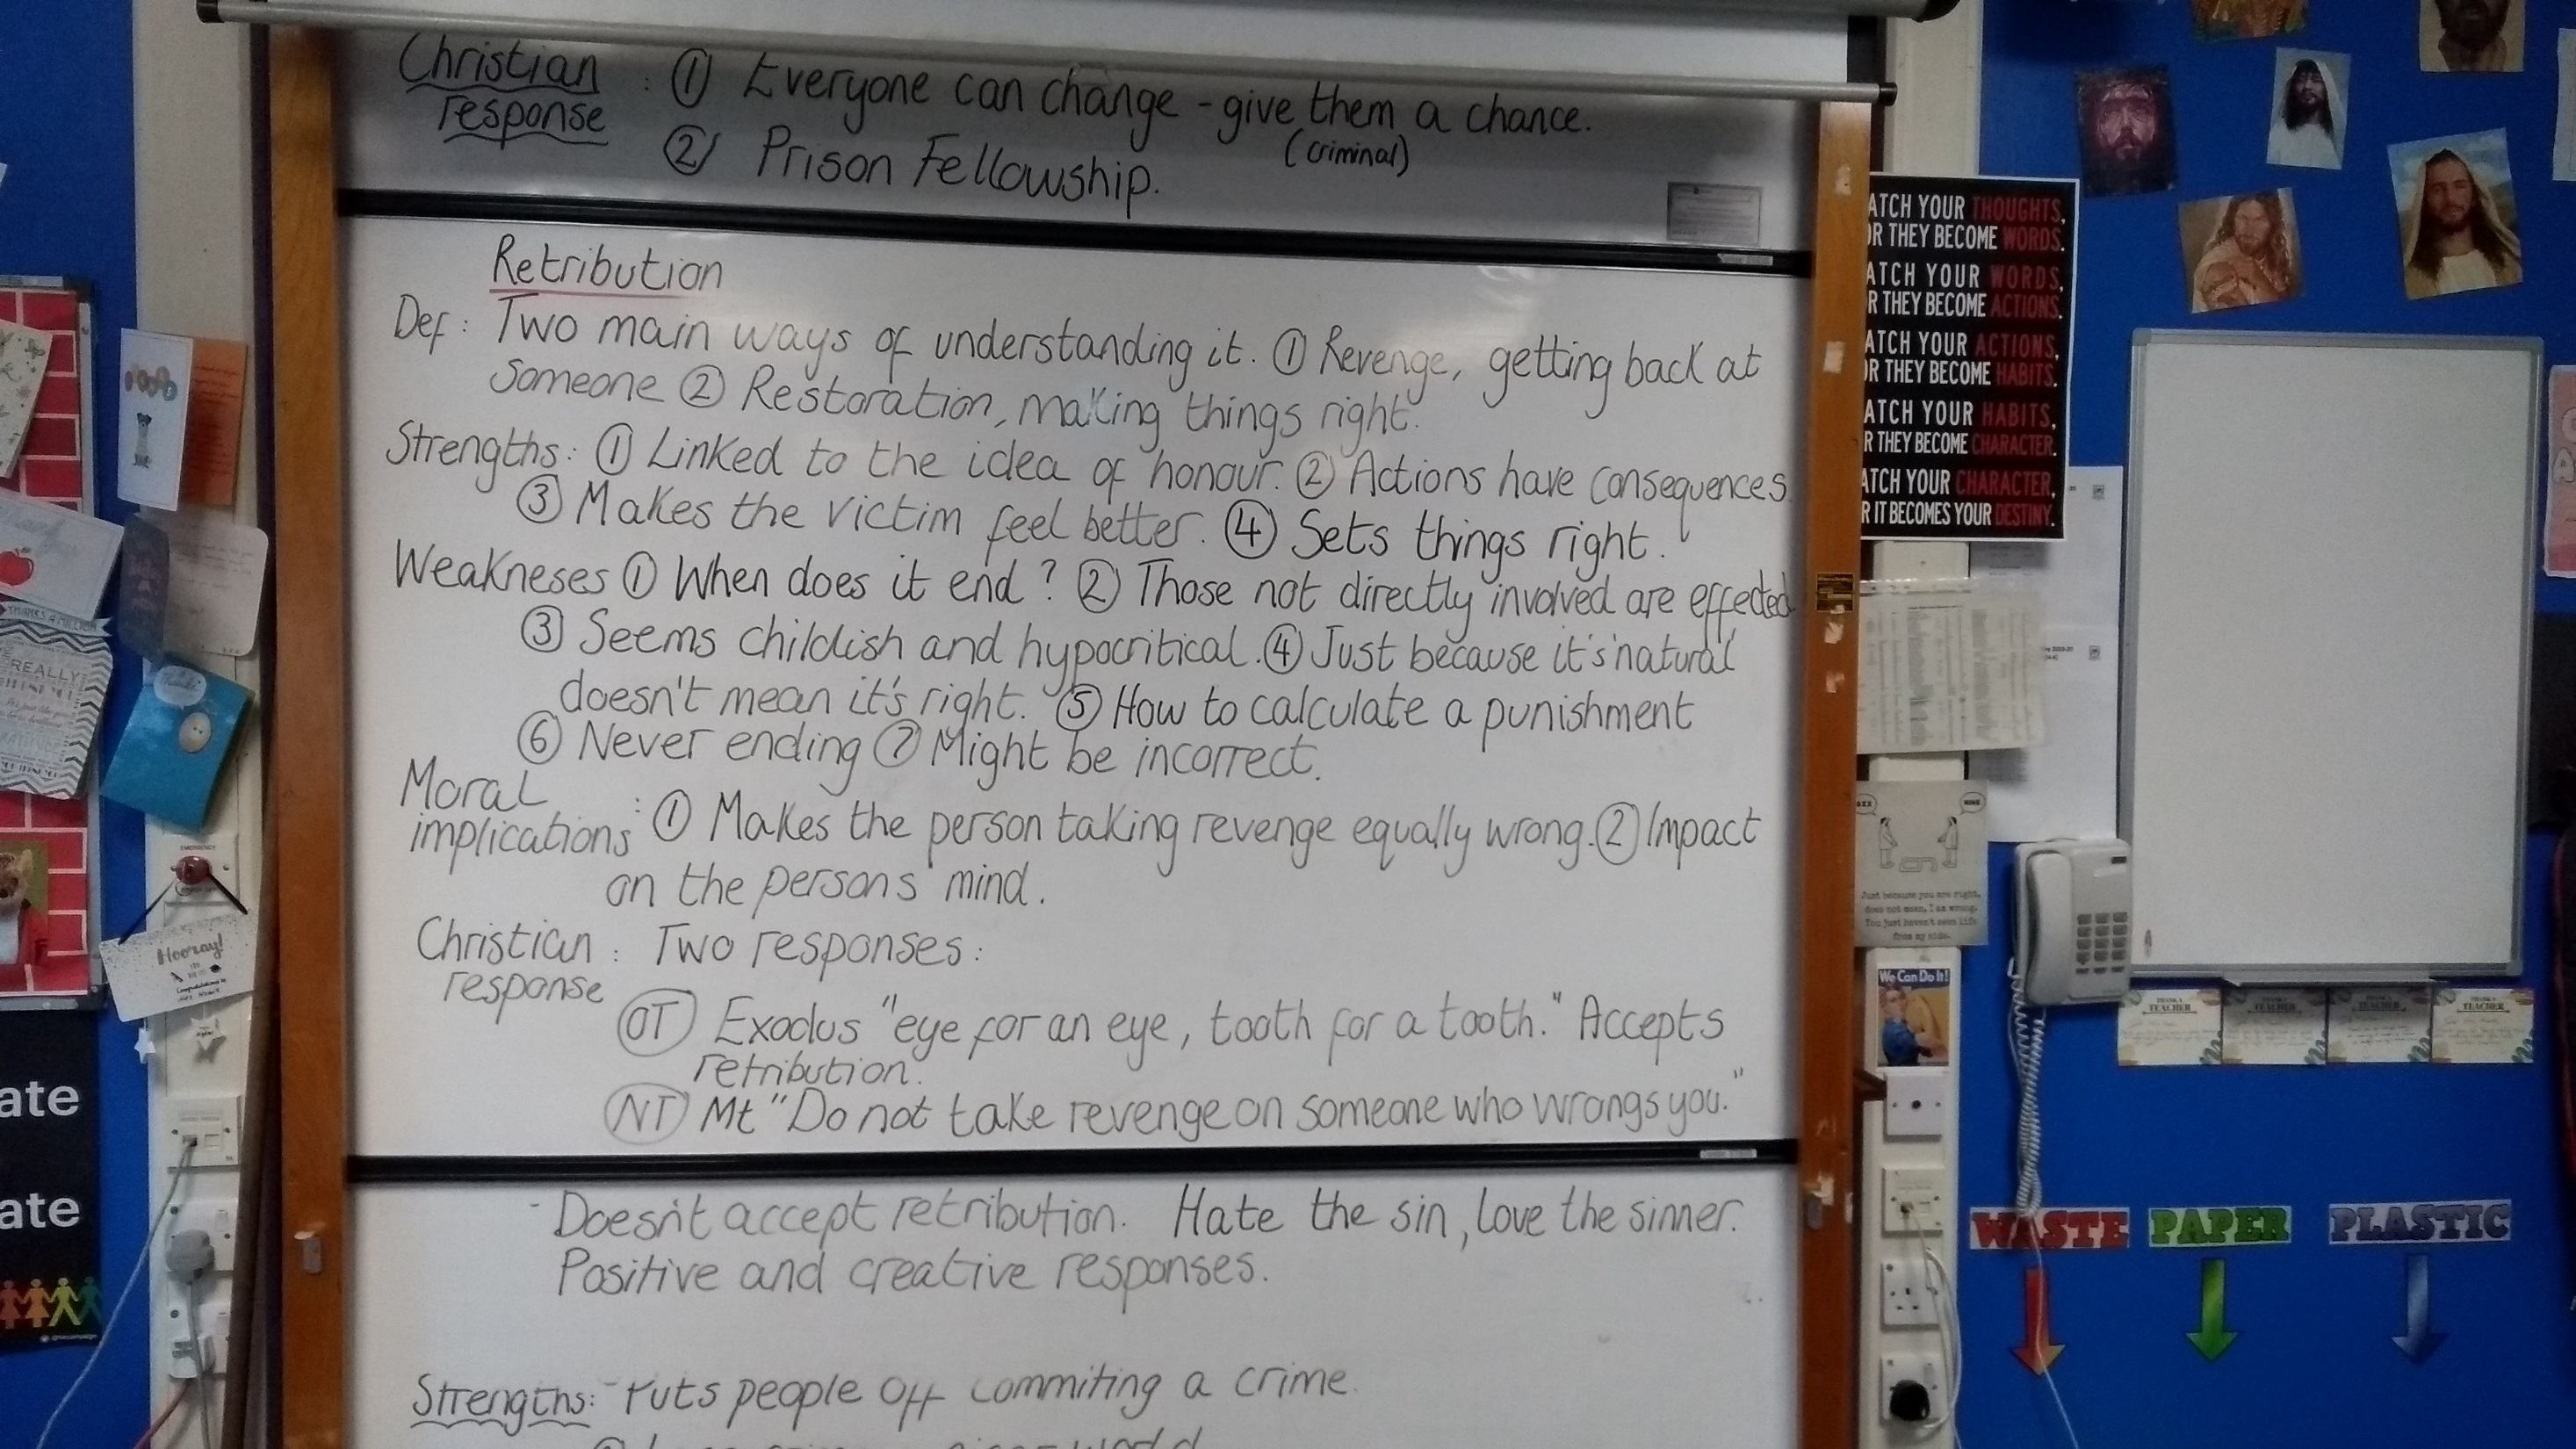 Christian : ① Everyone can change - give them a chance.
response (criminal)
② Prison Fellowship.
Retribution
Def : Two main ways of understanding it. ① Revenge, getting back at
someone ② Restoration, making things right.
Strengths: ① Linked to the idea of honour. ② Actions have consequences
③ Makes the victim feel better. ④ Sets things right.
Weakneses ① When does it end ? ② Those not directly involved are effected
③ Seems childish and hypocritical. ④ Just because it's natural
doesn't mean it's right. ⑤ How to calculate a punishment
⑥ Never ending ⑦ Might be incorrect.
Moral
implications : ① Makes the person taking revenge equally wrong. ② Impact
on the persons' mind.
Christian : Two responses:
response
OT Exodus "eye for an eye, tooth for a tooth." Accepts
retribution.
NT Mt "Do not take revenge on someone who wrongs you."
- Doesn't accept retribution. Hate the sin, love the sinner.
Positive and creative responses.
Strengths: - Puts people off commiting a crime.
ATCH YOUR THOUGHTS,
OR THEY BECOME WORDS.
ATCH YOUR WORDS,
R THEY BECOME ACTIONS.
ATCH YOUR ACTIONS,
OR THEY BECOME HABITS.
ATCH YOUR HABITS,
R THEY BECOME CHARACTER.
ATCH YOUR CHARACTER,
R IT BECOMES YOUR DESTINY.
SIX NINE
Just because you are right,
does not mean, I am wrong.
You just haven't seen life
from my side.
We Can Do It!
THANK A TEACHER
THANK A TEACHER
THANK A TEACHER
THANK A TEACHER
WASTE PAPER PLASTIC
THANKS A MILLION
REALLY
Thanks
EMERGENCY
Hooray!
Congratulations
ate
ate